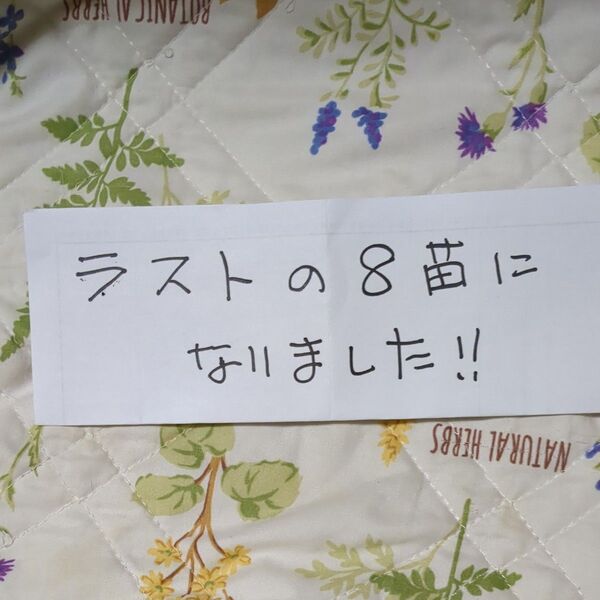 BOTANICAL HERBS
NATURAL HERBS
ラストの8苗に
なりました!!
NATURAL HERBS